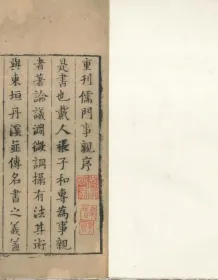 重刊儒門事親序
是書也戴人張子和專為事親
者著論議淵微調攝有法其術
與東垣丹溪並傳名書之義蓋